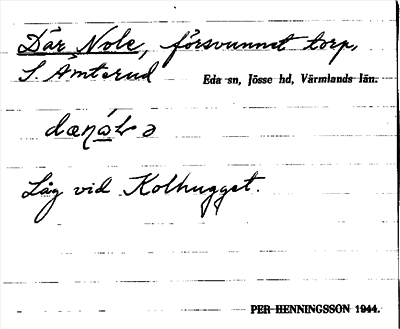 Där Nole, försvunnet torp,
S. Ämterud Eda sn, Jösse hd, Värmlands län.
Låg vid Kolhugget.
PER HENNINGSSON 1944.